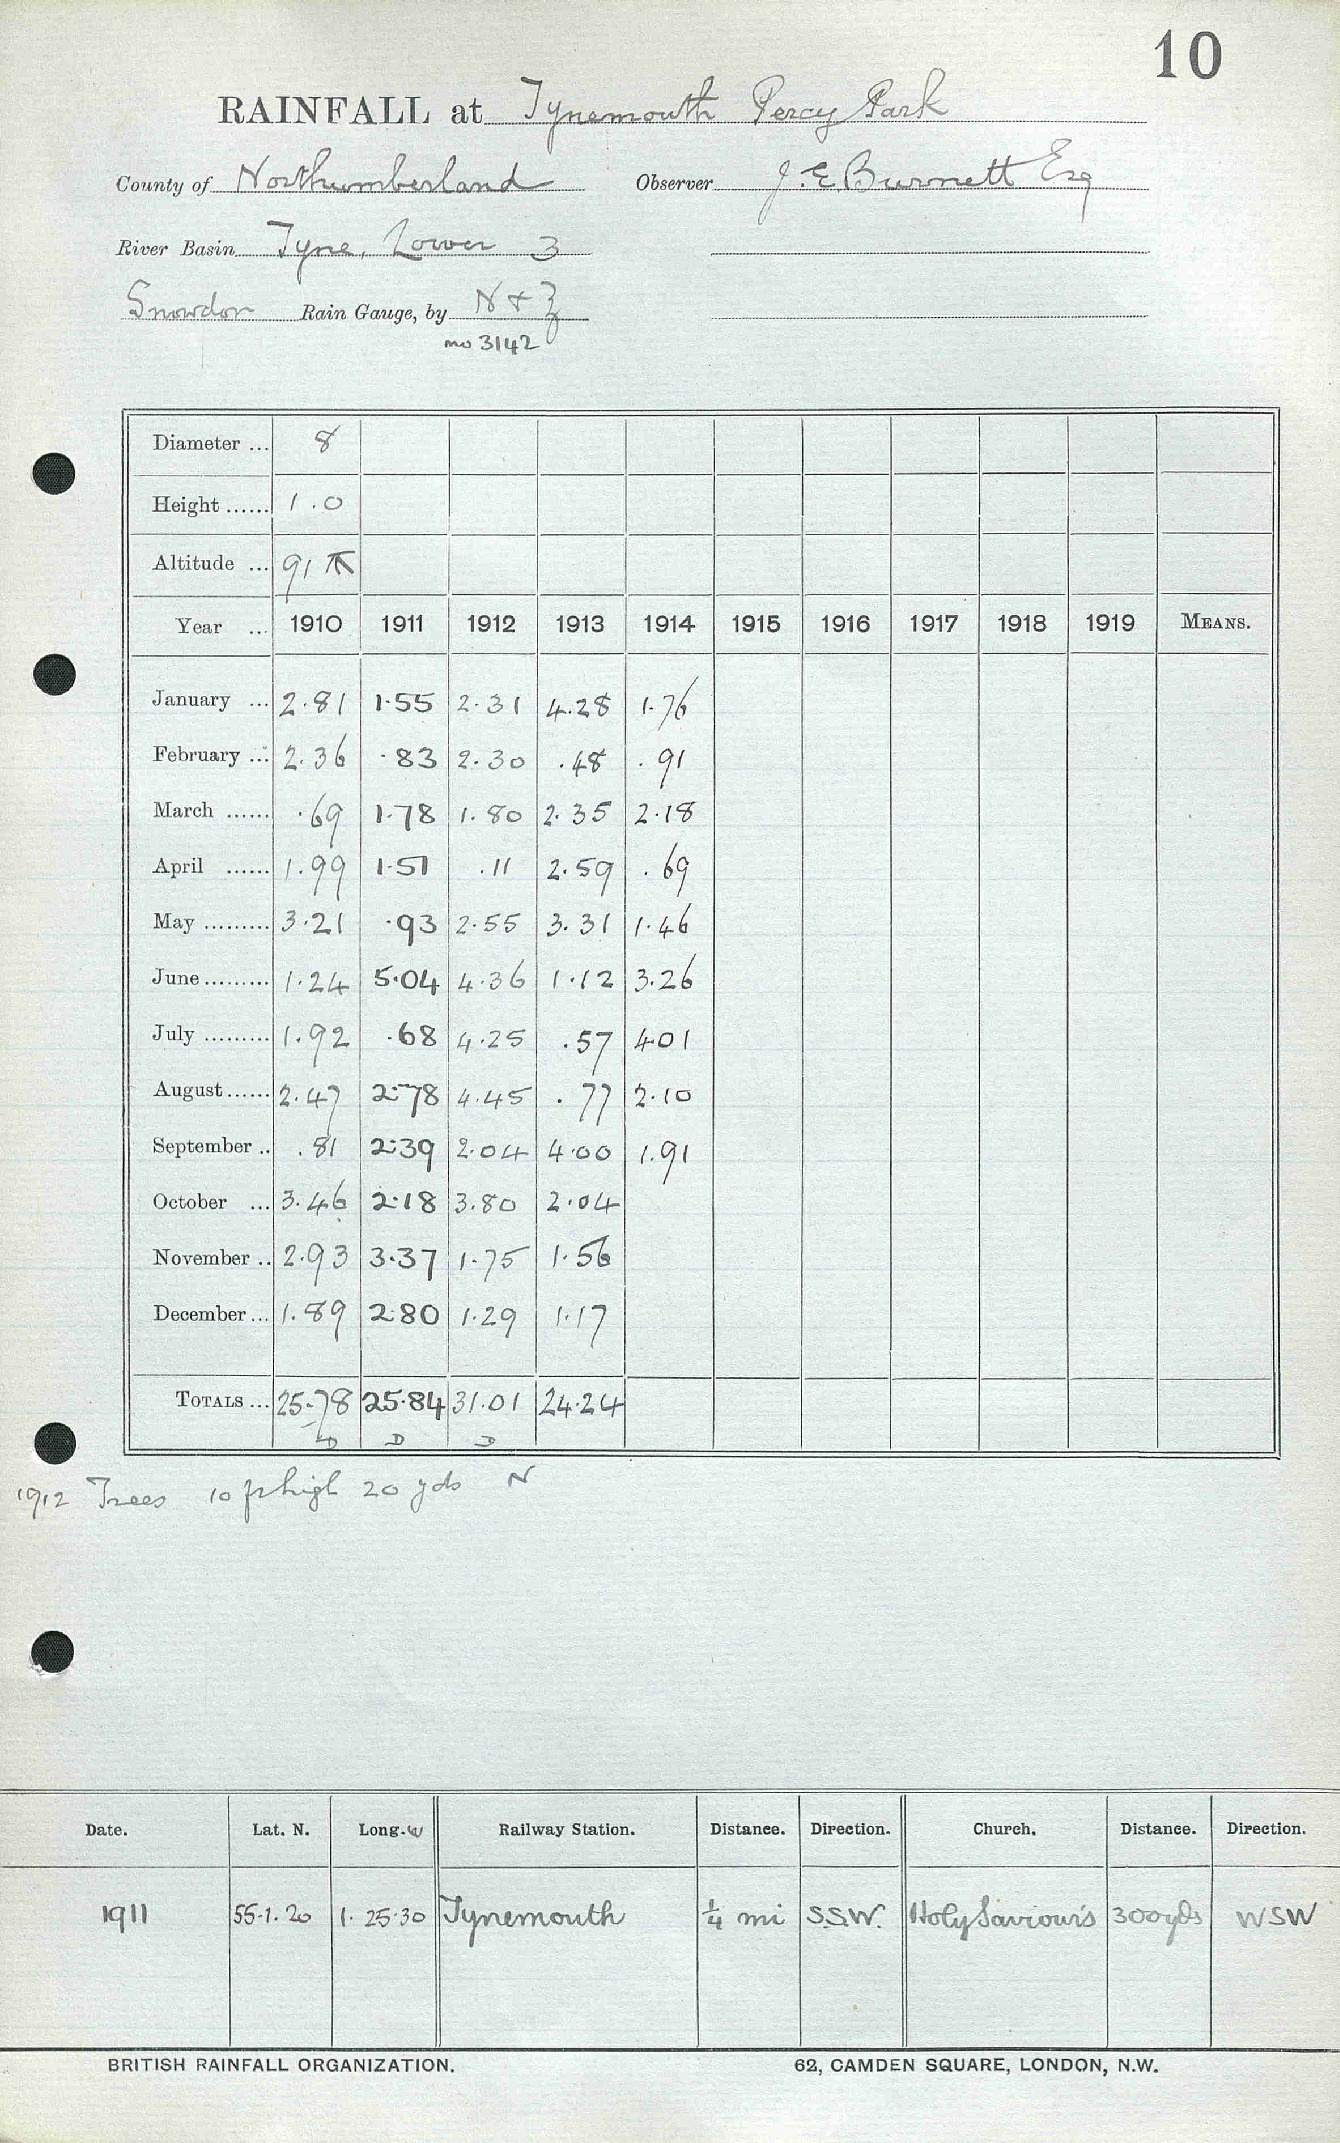 10
RAINFALL at Tynemouth Percy Park
County of Northumberland Observer J. E. Burnett Esq
River Basin Tyne, Lower 3
Snowdon Rain Gauge, by N & Z
no 3142
Diameter ... 8
Height ...... 1.0
Altitude ... 91
Year ... 1910 1911 1912 1913 1914 1915 1916 1917 1918 1919 MEANS.
January ... 2.81 1.55 2.31 4.28 1.76
February ... 2.36 .83 2.30 .48 .91
March ...... .69 1.78 1.80 2.35 2.18
April ...... 1.99 1.51 .11 2.59 .69
May ......... 3.21 .93 2.55 3.31 1.46
June ......... 1.24 5.04 4.36 1.12 3.26
July ......... 1.92 .68 4.25 .57 4.01
August ...... 2.47 2.78 4.45 .77 2.10
September .. .81 2.39 2.04 4.00 1.91
October ... 3.46 2.18 3.80 2.04
November .. 2.93 3.37 1.75 1.56
December ... 1.89 2.80 1.29 1.17
TOTALS ... 25.78 25.84 31.01 24.24
D D D
1912 Trees 10 ft high 20 yds N
Date. Lat. N. Long. W Railway Station. Distance. Direction. Church. Distance. Direction.
1911 55.1.20 1.25.30 Tynemouth ¼ mi S.S.W. Holy Saviour's 300 yds WSW
BRITISH RAINFALL ORGANIZATION. 62, CAMDEN SQUARE, LONDON, N.W.